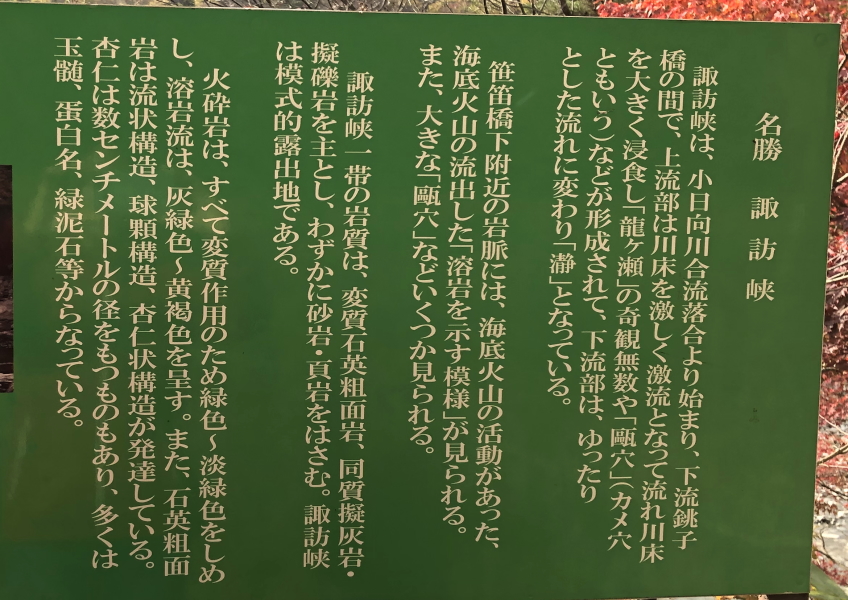 名勝 諏訪峡
諏訪峡は、小日向川合流落合より始まり、下流銚子
橋の間で、上流部は川床を激しく激流となって流れ川床
を大きく浸食し「龍ヶ瀬」の奇観無数や「甌穴」(カメ穴
ともいう)などが形成されて、下流部は、ゆったり
とした流れに変わり「瀞」となっている。
笹笛橋下附近の岩脈には、海底火山の活動があった、
海底火山の流出した「溶岩を示す模様」が見られる。
また、大きな「甌穴」などいくつか見られる。
諏訪峡一帯の岩質は、変質石英粗面岩、同質擬灰岩・
擬礫岩を主とし、わずかに砂岩・頁岩をはさむ。諏訪峡
は模式的露出地である。
火砕岩は、すべて変質作用のため緑色~淡緑色をしめ
し、溶岩流は、灰緑色~黄褐色を呈す。また、石英粗面
岩は流状構造、球顆構造、杏仁状構造が発達している。
杏仁は数センチメートルの径をもつものもあり、多くは
玉髄、蛋白名、緑泥石等からなっている。